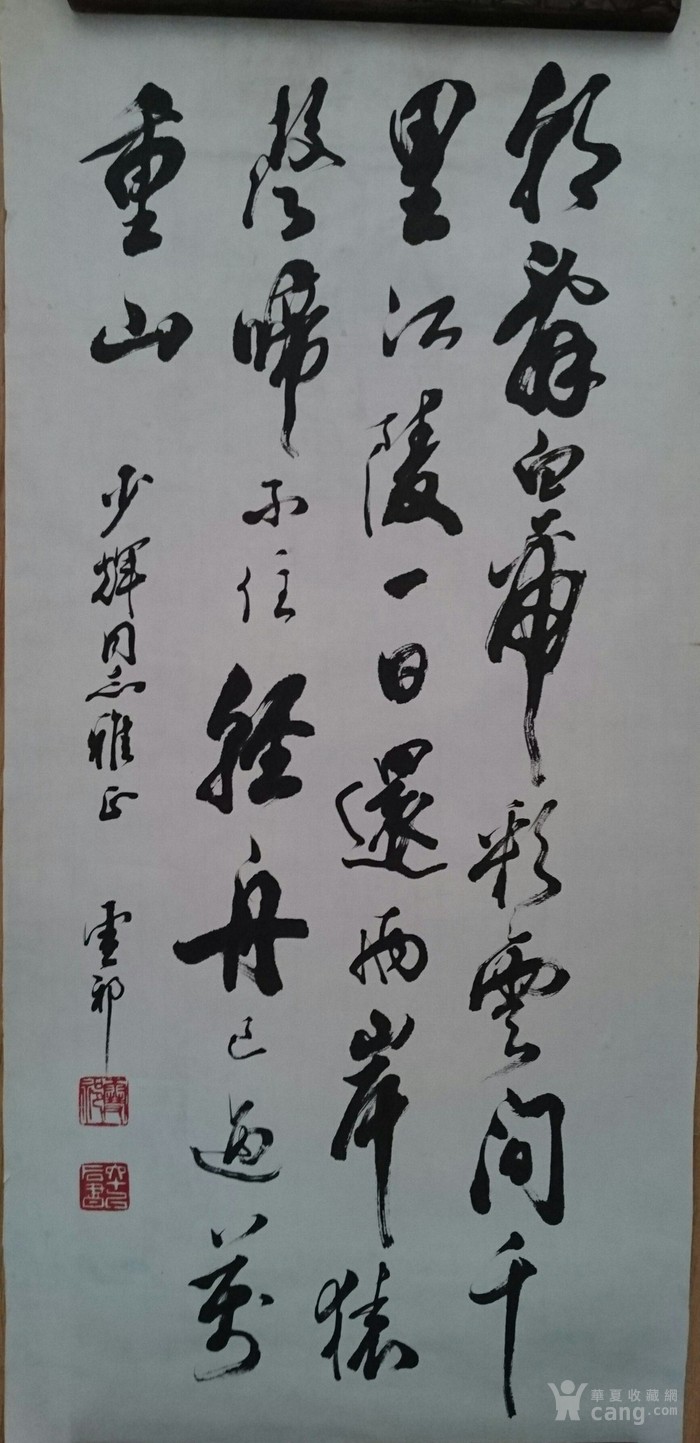 朝辭白帝彩雲間千
里江陵一日還兩岸猿
聲啼不住輕舟已過萬
重山
少輝同志雅正
華夏收藏網
cang.com